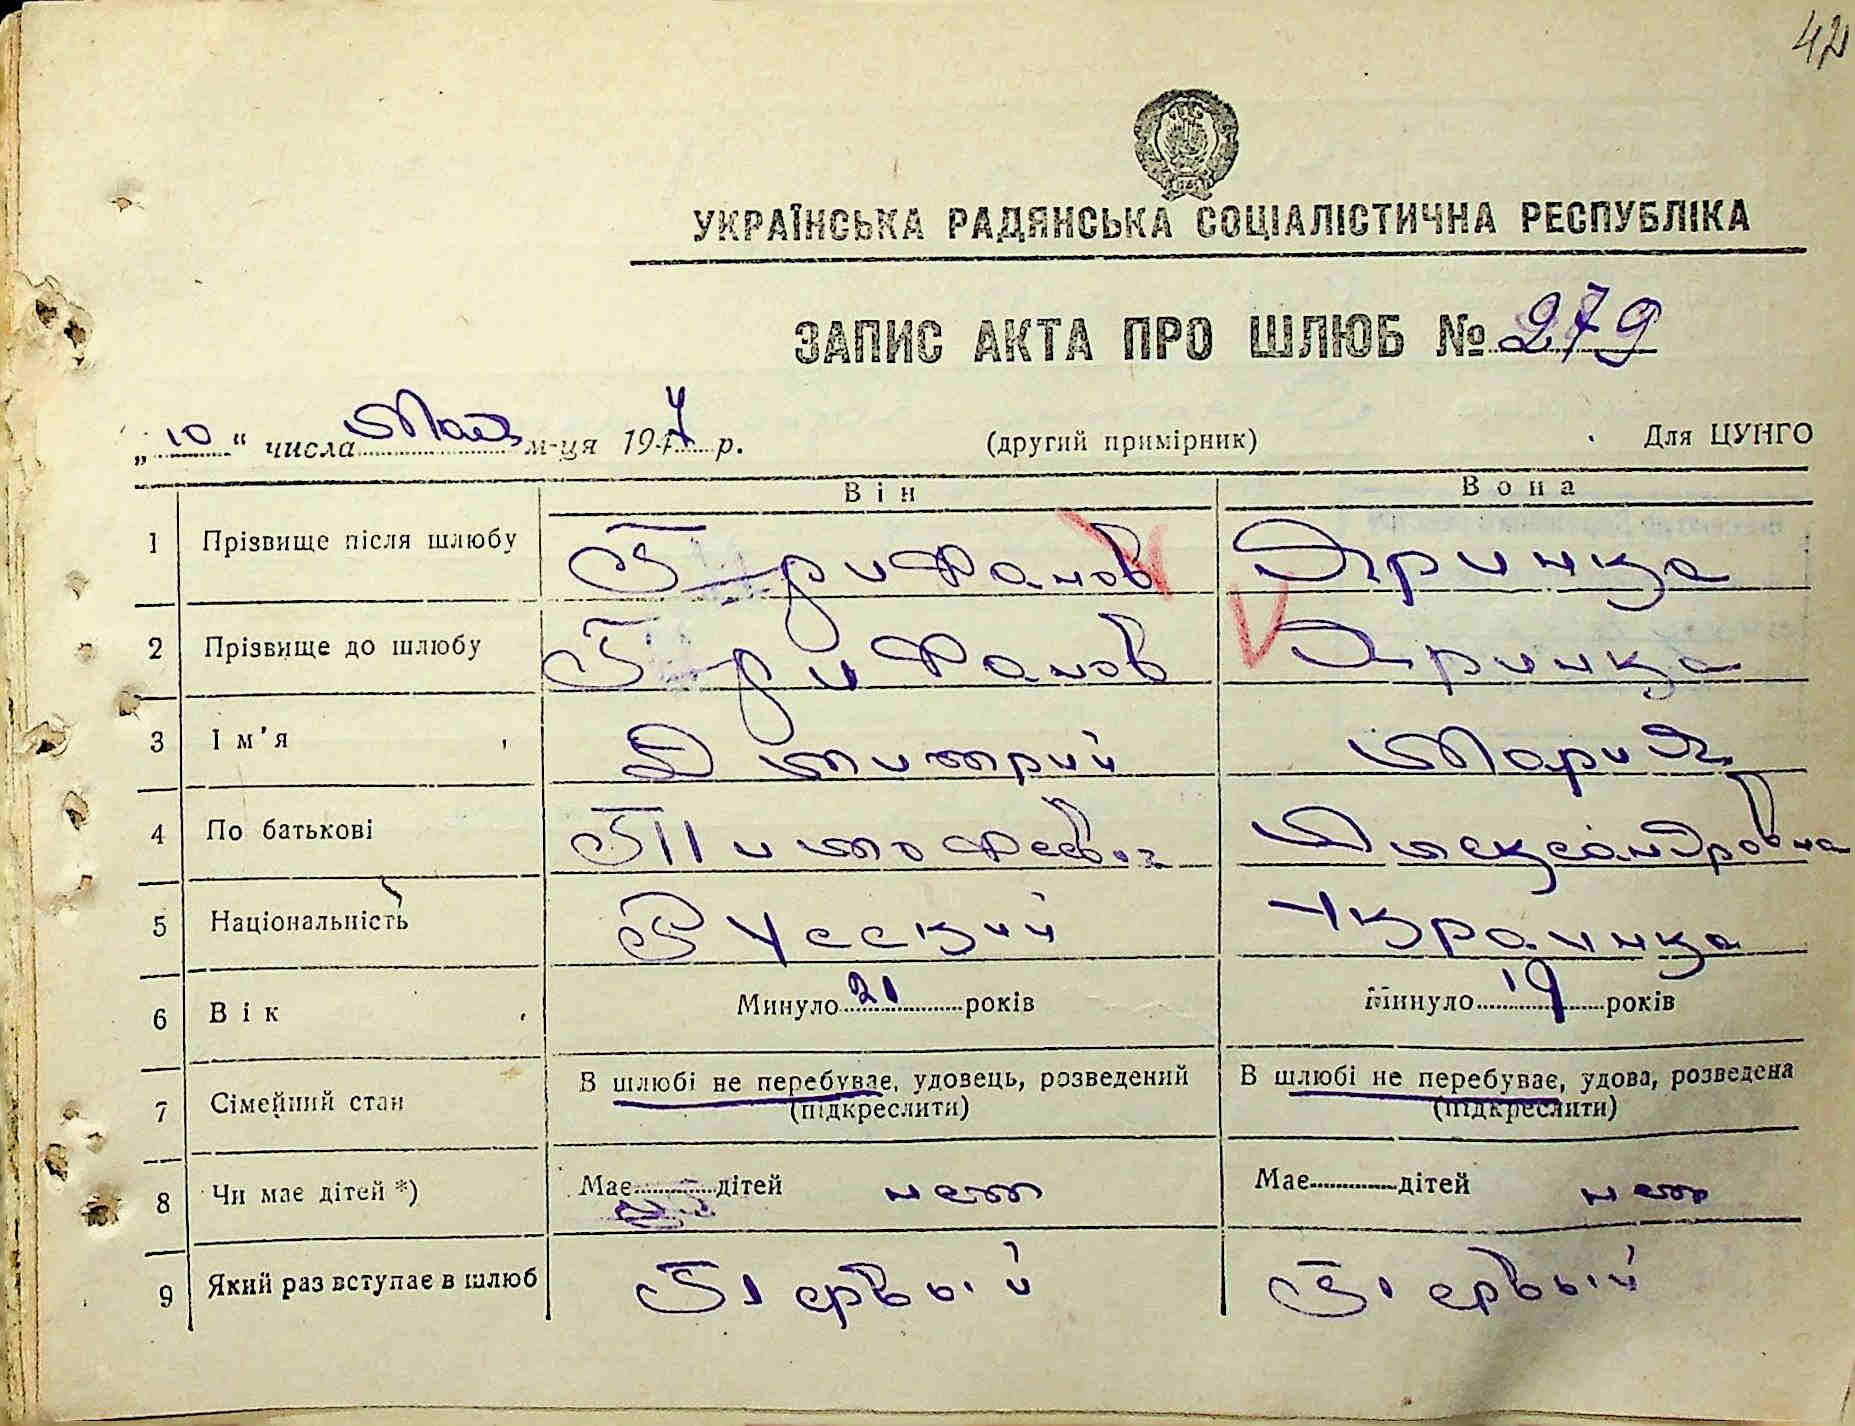 42
УКРАЇНСЬКА РАДЯНСЬКА СОЦІАЛІСТИЧНА РЕСПУБЛІКА
ЗАПИС АКТА ПРО ШЛЮБ № 279
„10“ числа Мая м-ця 1947 р. (другий примірник) Для ЦУНГО
Він Вона
1 Прізвище після шлюбу Грифанов Яринка
2 Прізвище до шлюбу Грифанов Яринка
3 Ім'я Дмитрий Мария
4 По батькові Тимофеевич Александровна
5 Національність Русский Украинка
6 Вік Минуло 21 років Минуло 19 років
7 Сімейний стан В шлюбі не перебуває, удовець, розведений В шлюбі не перебуває, удова, розведена
(підкреслити) (підкреслити)
8 Чи має дітей *) Має дітей нет Має дітей нет
9 Який раз вступає в шлюб Первый Первый